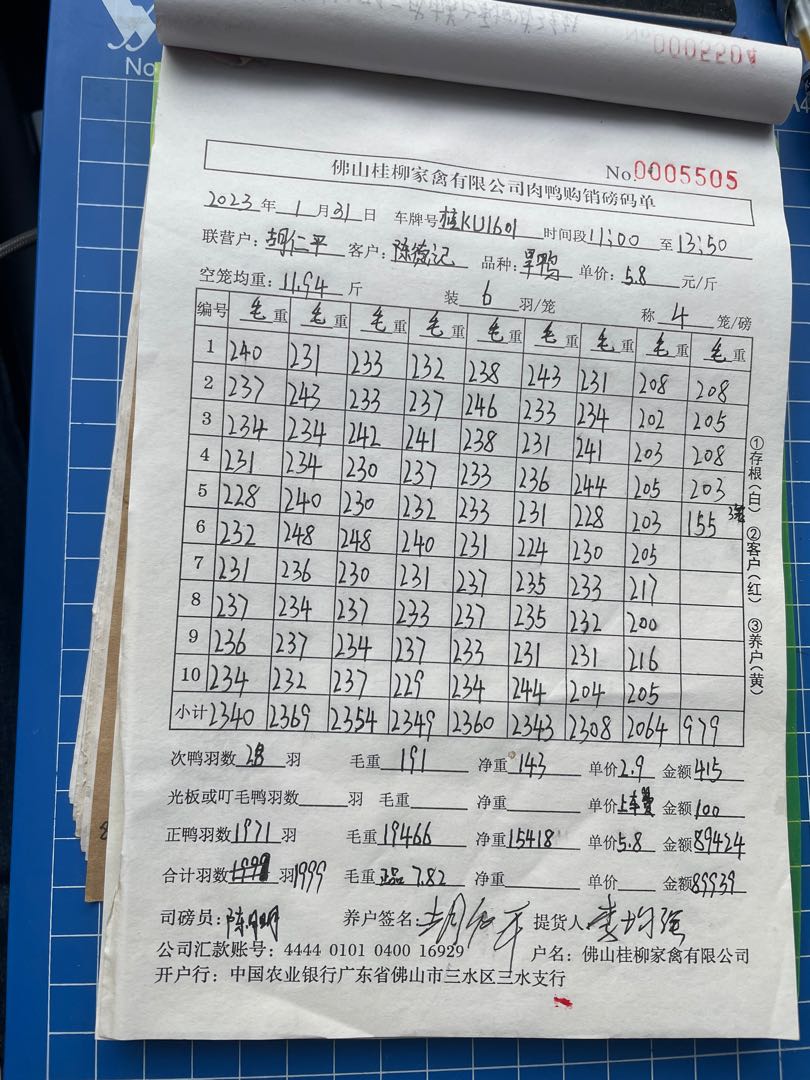 No
0005504
No.0005505
佛山桂柳家禽有限公司肉鸭购销磅码单
2023年1月31日 车牌号桂KU1601 时间段11:00至13:50
联营户:胡仁平 客户:陈德记 品种:旱鸭 单价:5.8元/斤
空笼均重:11.94斤 装6羽/笼 称4笼/磅
编号 毛重 毛重 毛重 毛重 毛重 毛重 毛重 毛重 毛重
1 240 231 233 232 238 243 231 208 208
2 237 243 233 237 246 233 234 202 205
3 234 234 242 241 238 231 241 203 208
4 231 234 230 237 233 236 244 205 203
5 228 240 230 232 233 231 228 203 155 3笼
6 232 248 248 240 231 224 230 205
7 231 236 230 231 237 235 233 217
8 237 234 237 233 237 235 232 200
9 236 237 234 237 233 231 231 216
10 234 232 237 229 234 244 204 205
小计 2340 2369 2354 2349 2360 2343 2308 2064 979
①存根(白) ②客户(红) ③养户(黄)
次鸭羽数28羽 毛重191 净重143 单价2.9 金额415
光板或叮毛鸭羽数 羽 毛重 净重 单价上车费 金额100
正鸭羽数1971羽 毛重19466 净重15418 单价5.8 金额89424
合计羽数 羽1999 毛重正品7.82 净重 单价 金额89939
司磅员:陈明 养户签名:胡仁平 提货人:李均强
公司汇款账号:4444 0101 0400 16929 户名:佛山桂柳家禽有限公司
开户行:中国农业银行广东省佛山市三水区三水支行